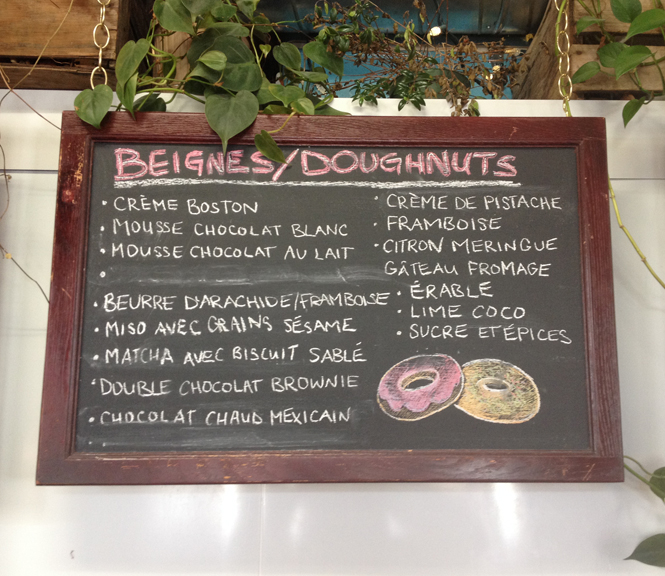 BEIGNES/DOUGHNUTS
• CRÈME BOSTON
• MOUSSE CHOCOLAT BLANC
• MOUSSE CHOCOLAT AU LAIT
•
• BEURRE D'ARACHIDE/FRAMBOISE
• MISO AVEC GRAINS SÉSAME
• MATCHA AVEC BISCUIT SABLÉ
• DOUBLE CHOCOLAT BROWNIE
• CHOCOLAT CHAUD MEXICAIN
•
• CRÈME DE PISTACHE
• FRAMBOISE
• CITRON MERINGUE
GÂTEAU FROMAGE
• ÉRABLE
• LIME COCO
• SUCRE ET ÉPICES